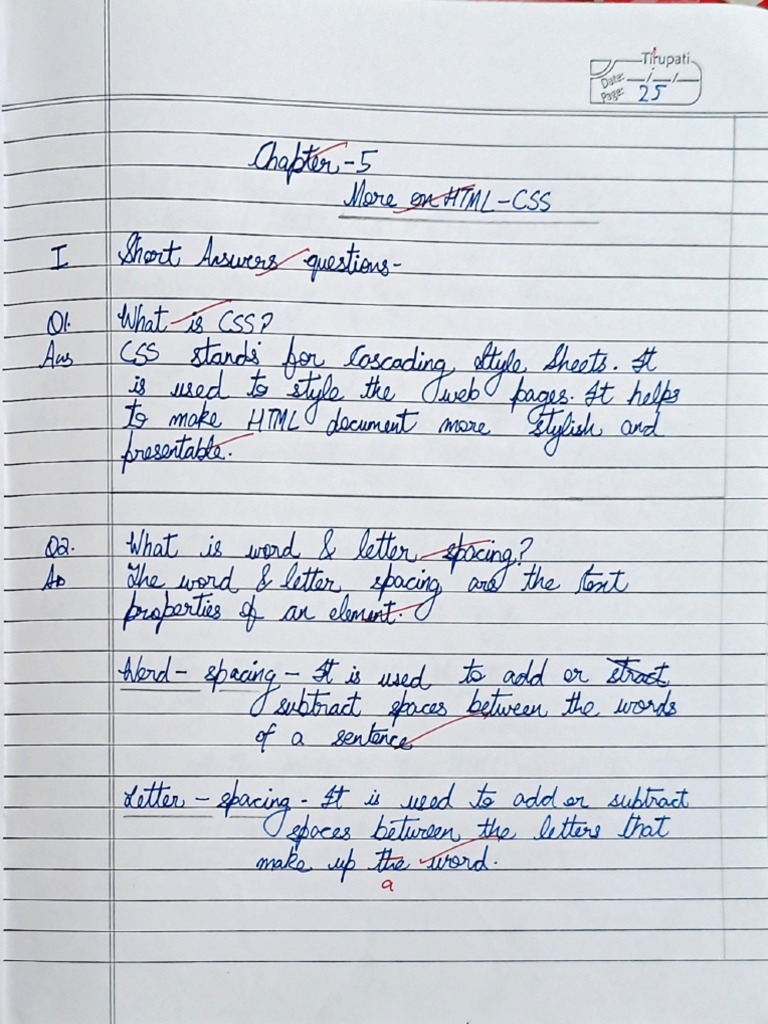 Tirupati
Date: / /
Page: 25
Chapter - 5
More on HTML - CSS
I Short Answers questions -
Q1. What is CSS?
Ans CSS stands for Coscading Style Sheets. It
is used to style the web pages. It helps
to make HTML document more stylish and
presentable.
Q2. What is word & letter spacing?
The word & letter spacing are the text
properties of an element.
Word - spacing - It is used to add or stract
subtract spaces between the words
of a sentence
Letter - spacing - It is used to add or subtract
spaces between the letters that
make up the word.
a